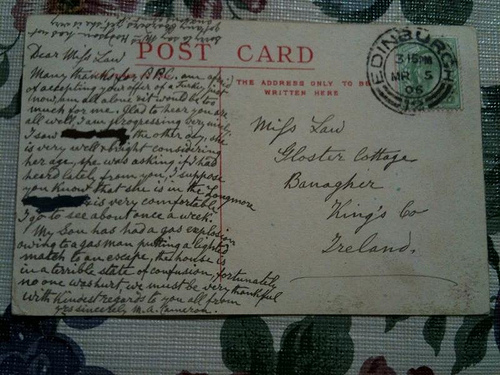 POST CARD
THE ADDRESS ONLY TO BE
WRITTEN HERE
EDINBURGH
3 15PM
MR 5
06
Dear Miss Law
Many thanks for B.P.C. am afraid
of accepting your offer of a Turkey just
now, am all alone & it would be too
much for me. Glad to hear you are
all well, I am progressing very nicely,
I saw the other day, she
is very well & bright considering
her age, she was asking if I had
heard lately from you, I suppose
you know that she is in the Longmore
is very comfortable
I go to see about once a week.
My Son has had a gas explosion
owing to a gas man putting a lighted
match to an escape, the house is
in a terrible state of confusion, fortunately
no one was hurt we must be very thankful
with kindest regards to you all from
yrs sincerely M. A. Cameron.
Miss Law
Gloster Cottage
Banagher
King's Co
Ireland.